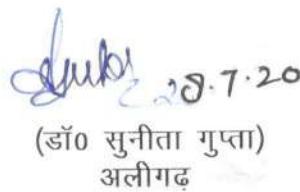 28.7.20
(डॉ0 सुनीता गुप्ता)
अलीगढ़